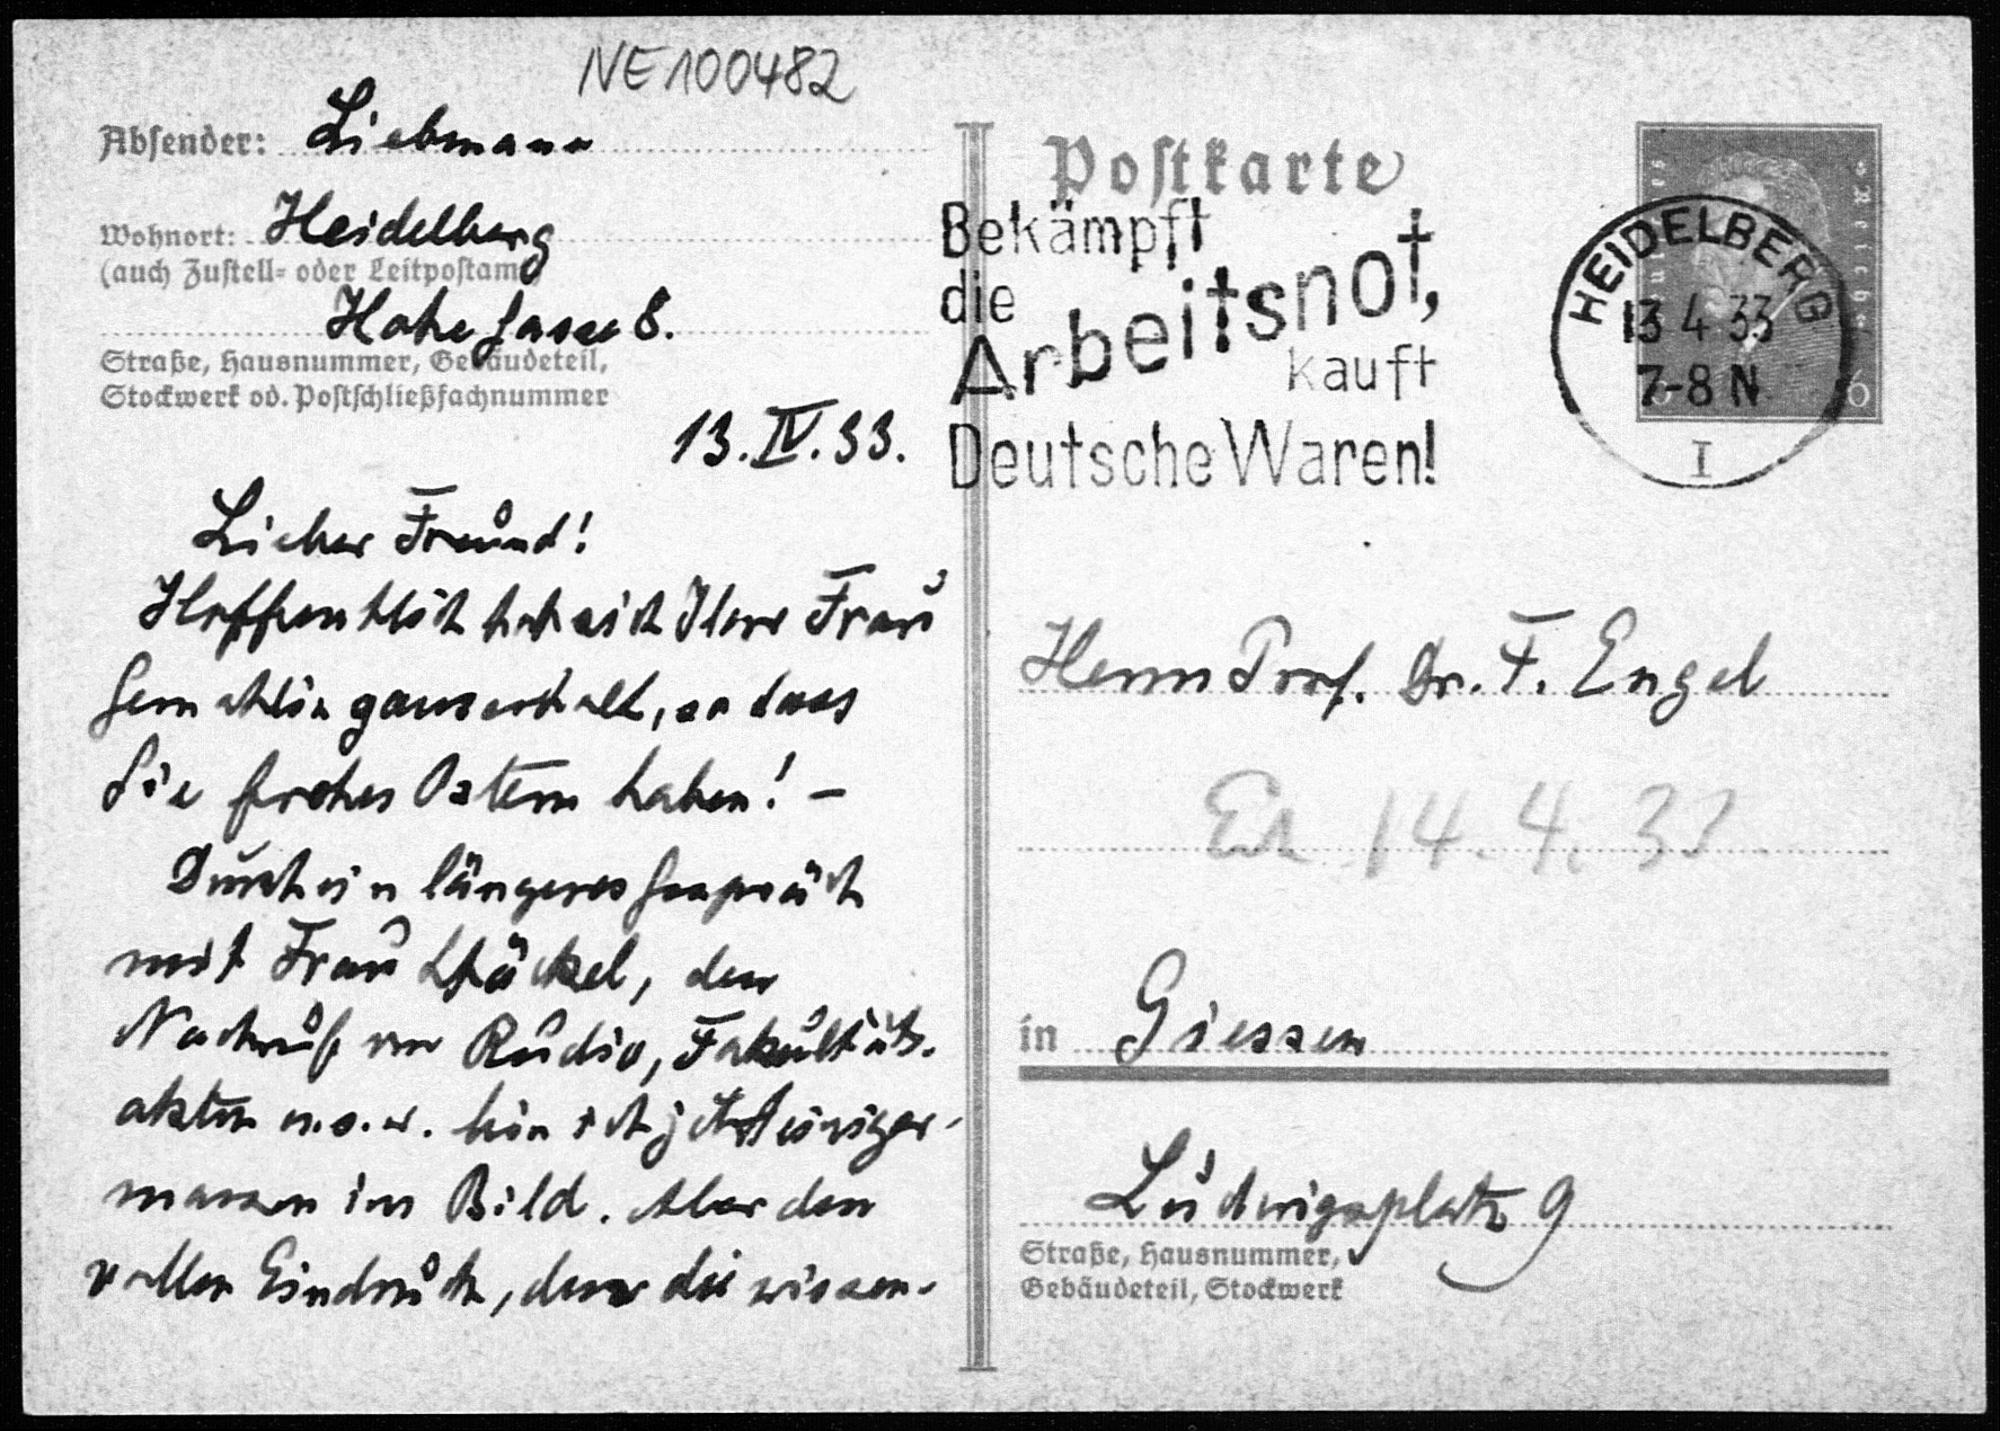 NE100482
Absender: Liebmann
Wohnort: Heidelberg
(auch Zustell- oder Leitpostamt)
Hohe Gasse 8.
Straße, Hausnummer, Gebäudeteil,
Stockwerk od. Postschließfachnummer
13.IV.33.
Lieber Freund!
Hoffentlich hat sich Ihre Frau
Gemahlin ganz erholt, so dass
Sie frohes Ostern haben! –
Durch ein längeres Gespräch
mit Frau Stäckel, den
Nachruf von Rudio, Fakultäts-
akten u.s.w. bin ich jetzt einiger-
massen im Bild. Aber den
vollen Eindruck, den die wissen-
Postkarte
Bekämpft
die
Arbeitsnot,
kauft
Deutsche Waren!
Deutsches Reich
6
HEIDELBERG
13 4 33
7-8 N
I
Herrn Prof. Dr. F. Engel
14.4.33
in Giessen
Ludwigsplatz 9
Straße, Hausnummer,
Gebäudeteil, Stockwerk